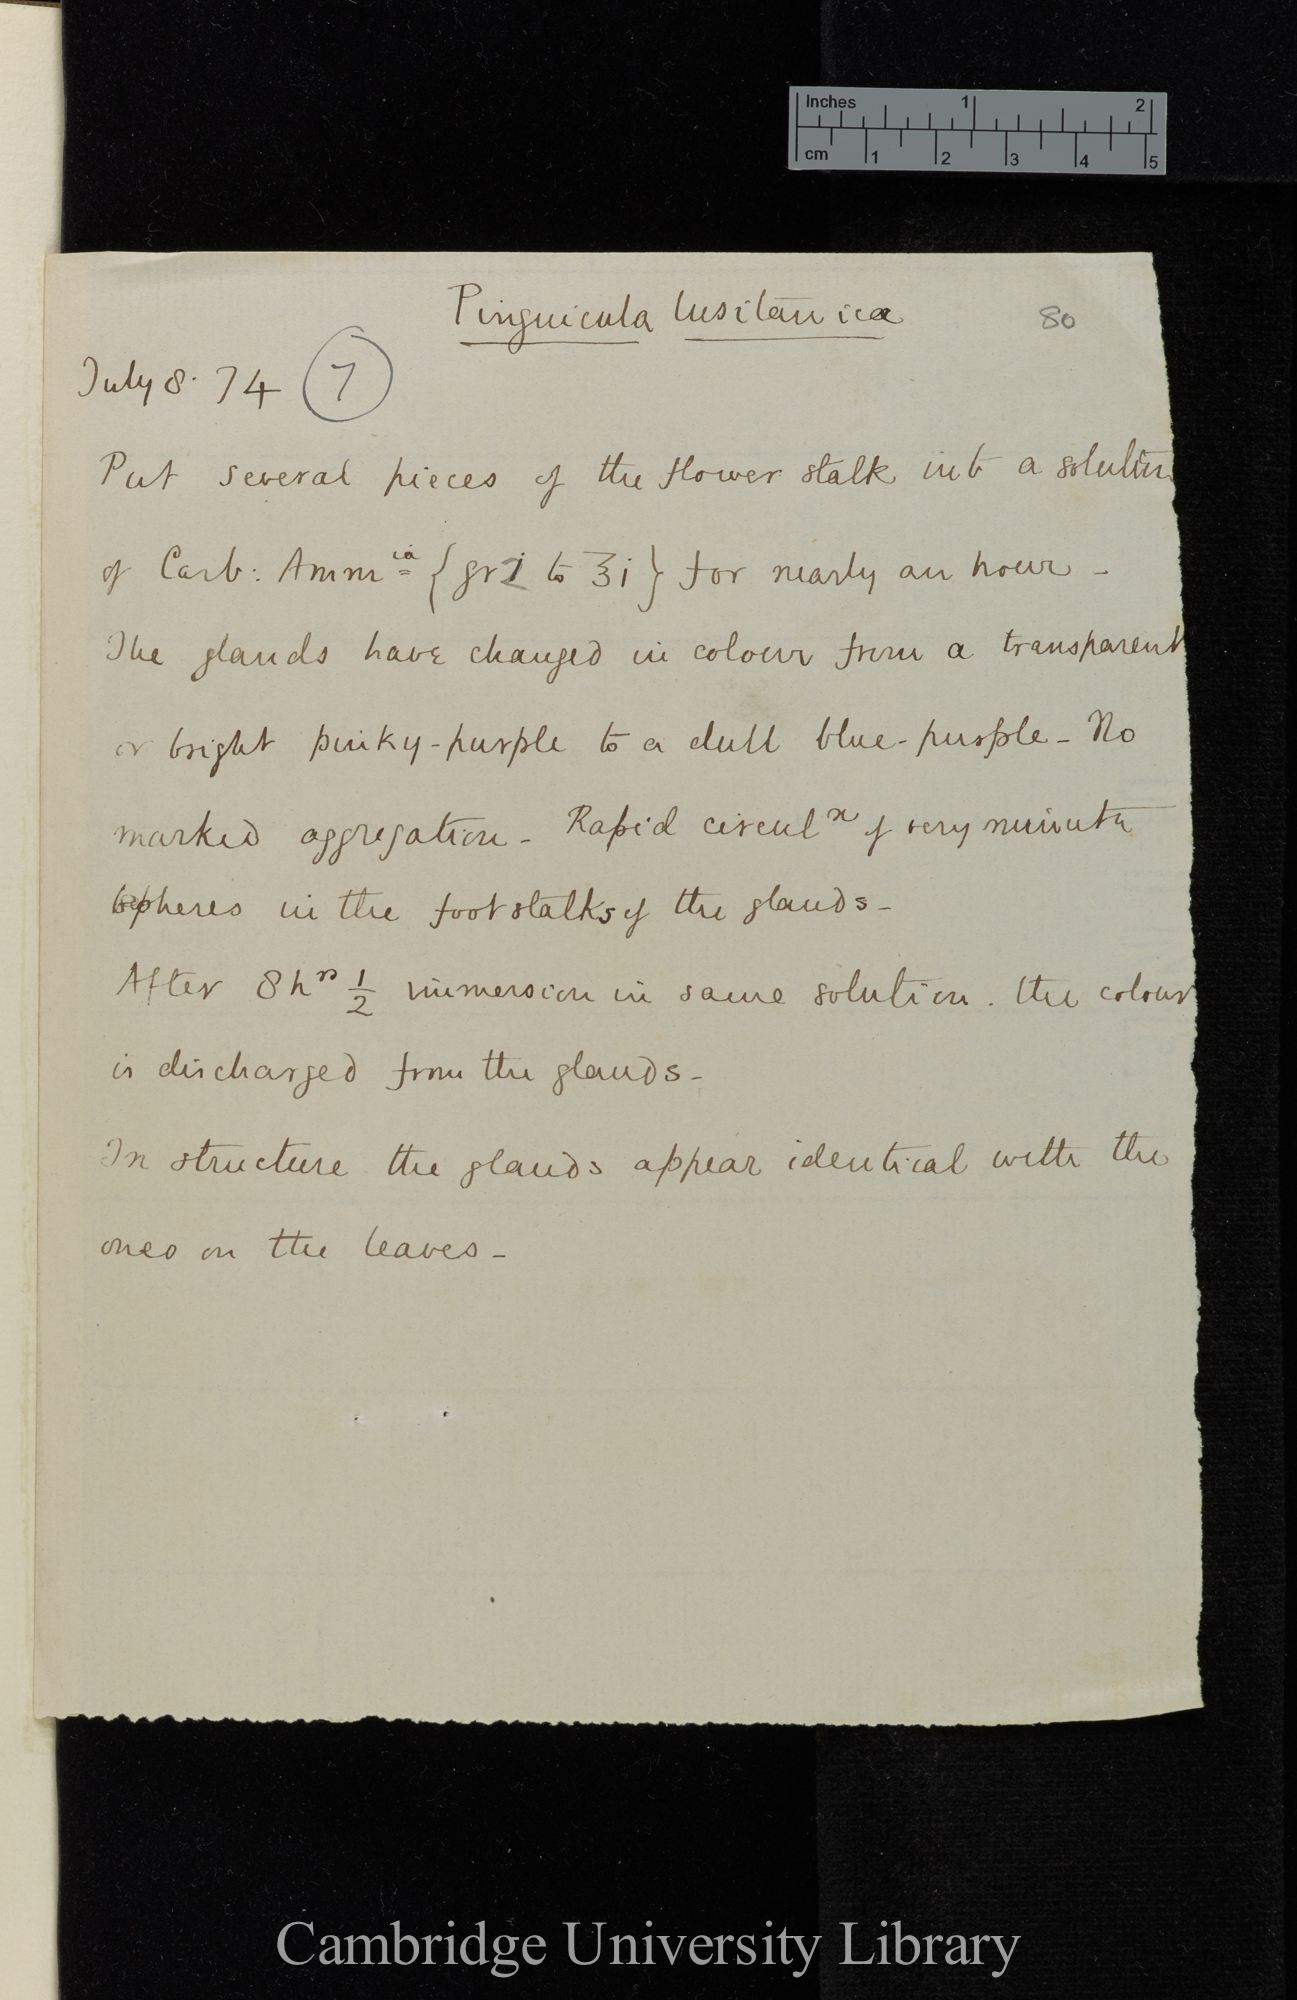 Inches 1 2
cm 1 2 3 4 5
Pinguicula lusitanica 80
July 8. 74 7
Put several pieces of the flower stalk into a solution
of Carb: Amm^ia {gr to ʒi} for nearly an hour -
The glands have changed in colour from a transparent
or bright pinky-purple to a dull blue-purple - No
marked aggregation - Rapid circul^n of very minute
spheres in the foot stalks of the glands -
After 8 h^rs 1/2 immersion in same solution. the colour
is discharged from the glands -
In structure the glands appear identical with the
ones on the leaves -
Cambridge University Library